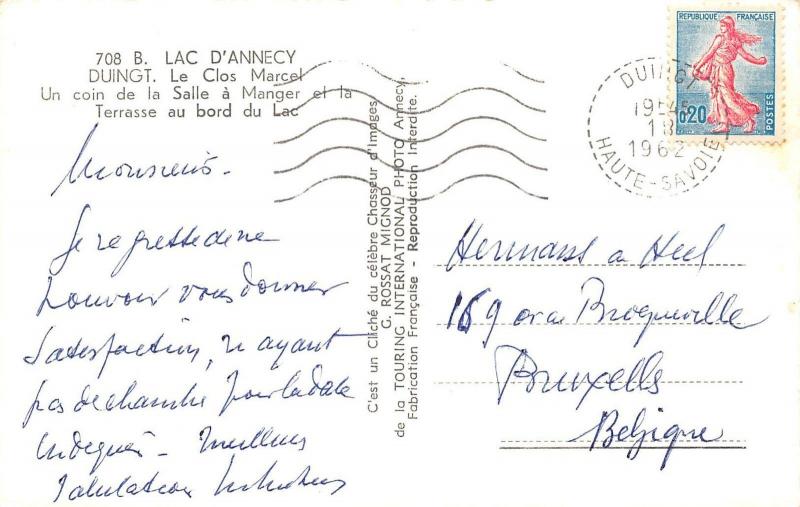 708 B. LAC D'ANNECY
DUINGT. Le Clos Marcel
Un coin de la Salle à Manger et la
Terrasse au bord du Lac
Monsieur.
Je regrette de ne
pouvoir vous donner
satisfaction, n'ayant
pas de chambre pour la date
indiquée. Meilleures
salutations
C'est un Cliché du célèbre Chasseur d'Images
G. ROSSAT MIGNOD
de la TOURING INTERNATIONAL PHOTO Annecy,
Fabrication Française - Reproduction Interdite.
REPUBLIQUE FRANÇAISE
0,20
POSTES
DUINGT
19H45
18
1962
HAUTE-SAVOIE
Hermans
169 Broqueville
Bruxelles
Belgique